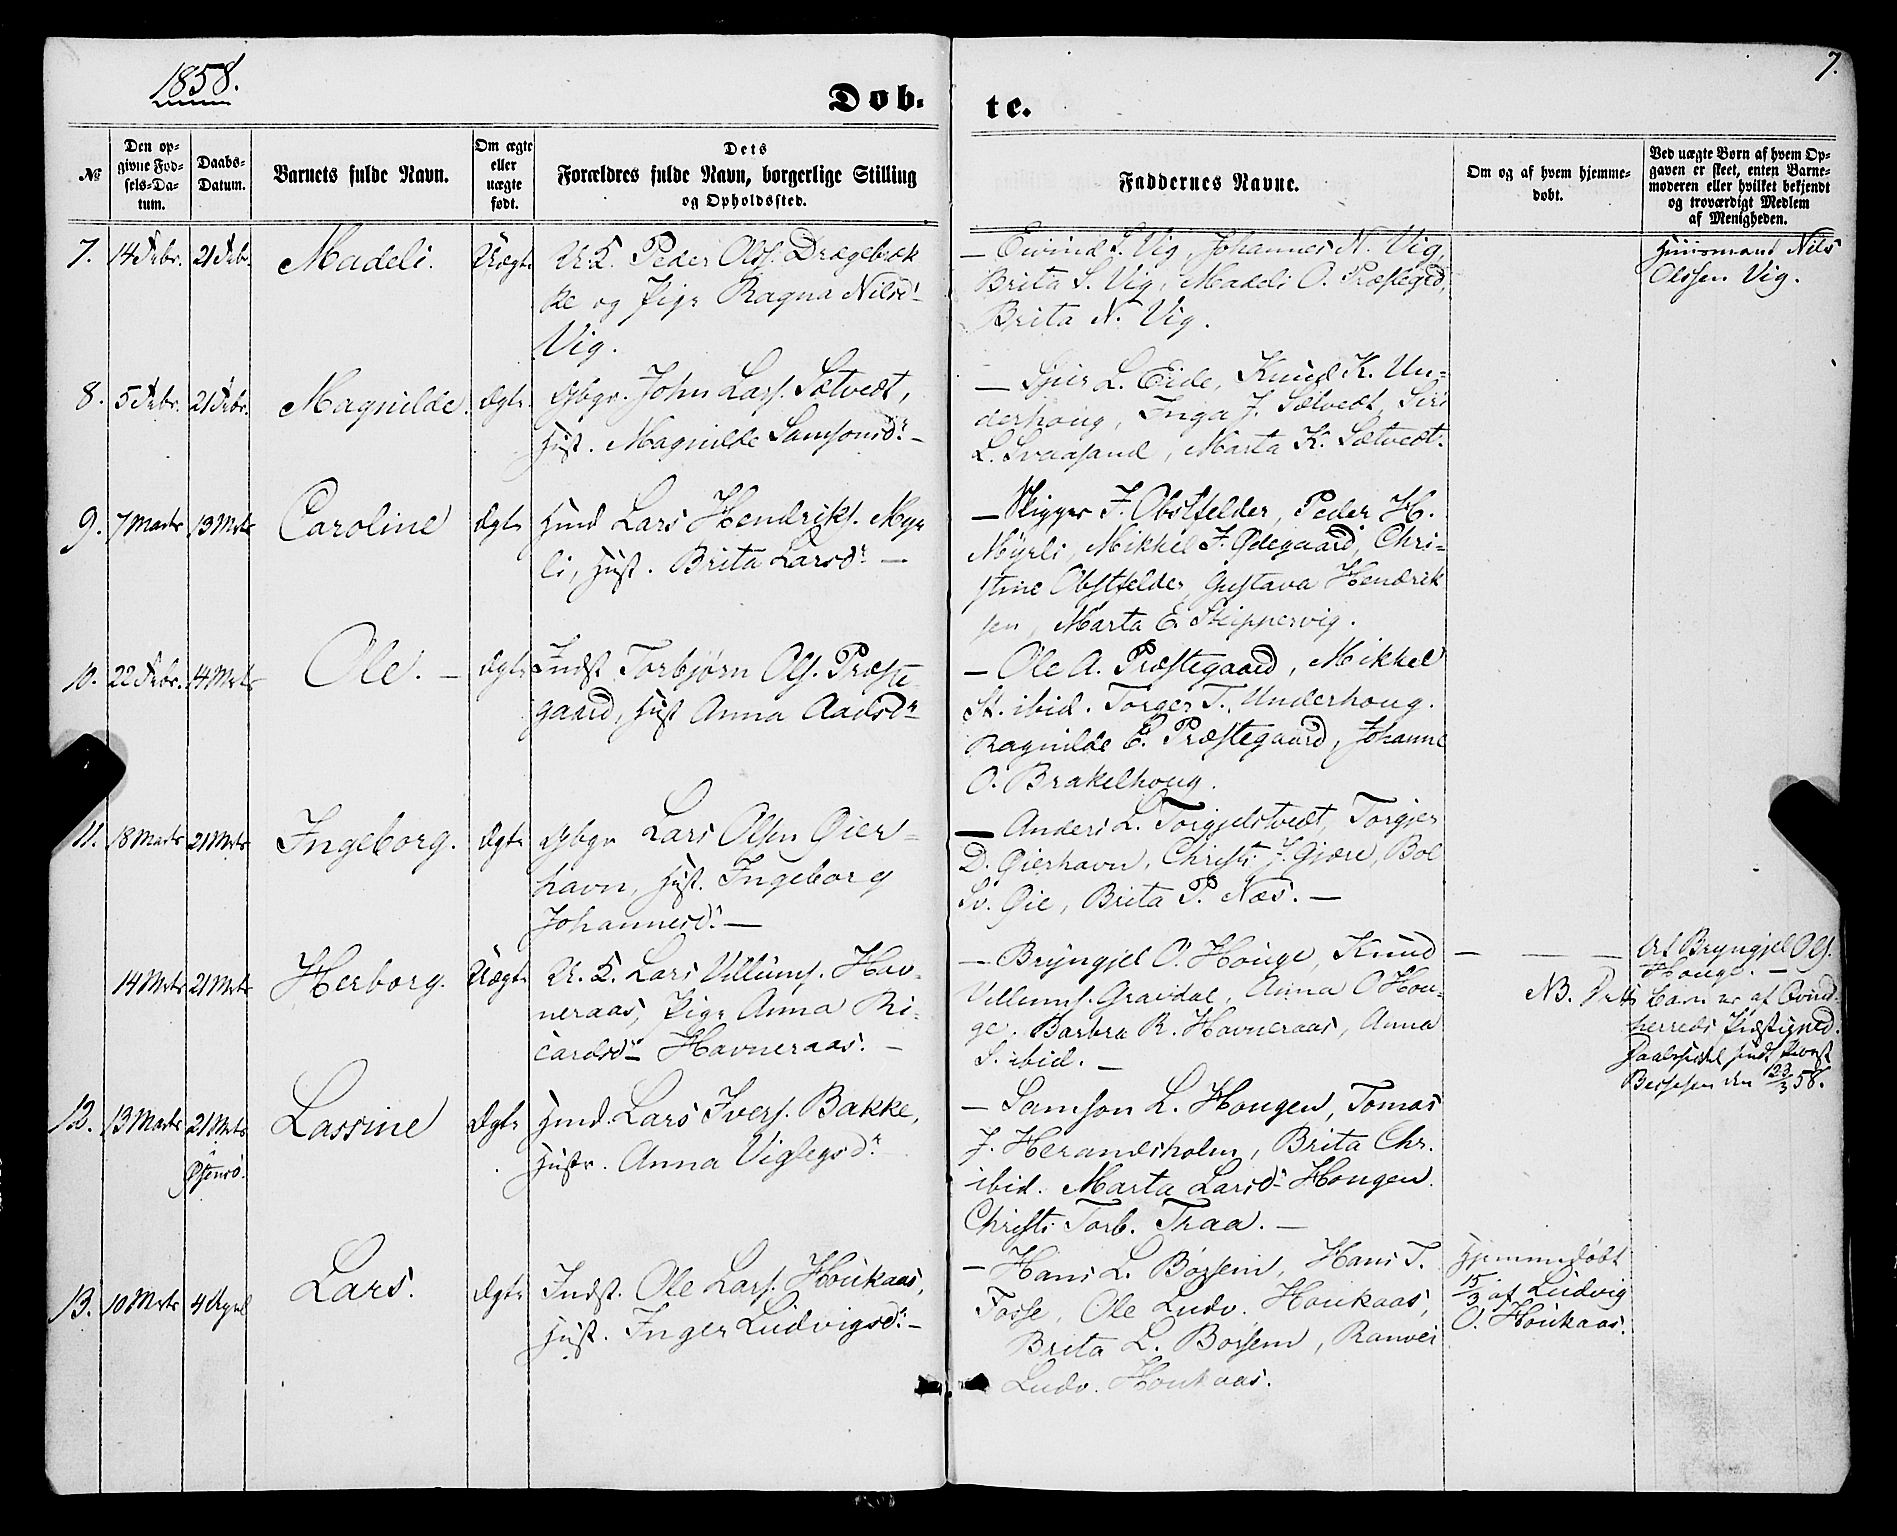 1858.
7.
Døb-
te.
№
Den op-
givne Fød-
sels-Da-
tum.
Daabs-
Datum.
Barnets fulde Navn.
Om ægte
eller
uægte
født.
Dets
Forældres fulde Navn, borgerlige Stilling
og Opholdssted.
Faddernes Navne.
Om og af hvem hjemme-
døbt.
Ved uægte Børn af hvem Op-
gaven er skeet, enten Barne-
moderen eller hvilket bekjendt
og troværdigt Medlem
af Menigheden.
7. 14 Febr. 21 Febr. Madeli. Uægte
U. K. Peder Ols. Drægebæk
ke og Pige Ragna Nilsd:
Vig.
— Eivind S. Vig, Johannes N. Vig,
Brita S. Vig, Madeli O. Præstegrd,
Brita N. Vig.
Huusmand Nils
Olssen Vig.
8. 5 Febr. 21 Febr. Magnilde. Ægte
Gbgr. John Lars. Sætvedt,
Hust. Magnilde Samsonsdr. —
— L. Eide, Knud K. Un-
derhoug, Inga J. Sætvedt, Siri
L. Svaasand, Marta K. Sætvedt.
9. 7 Marts 13 Mrts Caroline Ægte
Hmd Lars Hendriks. Myr
li, Hust. Brita Larsdr. —
— Skigger J. Obstfelder, Peder H.
Myrli, Mikkel J. Ødegaard, Chri-
stine Obstfelder, Gustava Hendrik
sen, Marta E. Skippervig.
10. 22 Febr. 14 Mrts Ole. — Ægte
Indst Torbjørn Ols. Præste
gaard, Hust Anna Aadsdr
— Ole A. Præstegaard, Mikkel
St. ibid. Torger T. Underhoug.
Ragnilde E. Præstegaard, Johanne
O. Brakelhoug.
11. 18 Marts 21 Mrts Ingeborg. Ægte
Gbgr Lars Olsen Øier-
havn, Hust. Ingeborg
Johannesdr. —
— Anders L. Torgjelstvedt, Torgjer
D. Øierhavn, Christi J. Gjøre, Boel
Sv. Øie, Brita P. Næs. —
14 Mrts 21 Mrts Herborg. Uægte
U. K. Lars Villums. Hav-
neraas, Pige Anna Ri-
cardsdr Havneraas. —
— Bryngjel O. Houge, Knud
Villums. Gravdal, Anna O Hou-
ge. Barbra R. Havneraas, Anna
S. ibid. —
— — —
Af Bryngjel Ols.
Houge. —
NB. Dette Barn er af Qvind-
herreds Præstegjeld.
Daabsseddel sendt Provst
den 23/3 58.
12. 13 Marts 21 Mrts Lassine Ægte
i
Østensø.
Hmd. Lars Ivers. Bakke,
Hustr. Anna Viglegsdr
— Samson L. Hougen, Tomas
J. Herandsholm, Brita Chr.
ibid. Marta Larsdr Hougen.
Christi Torb. Traa. —
13. 10 Mrts 4 April Lars. Ægte
Indst. Ole Lars. Houkaas,
Hust. Inger Ludvigsdr. —
— Hans L. Børsem, Hans T.
Fosse, Ole Ludv. Houkaas,
Brita L. Børsem, Ranvei
Ludv. Houkaas.
Hjemmedøbt
15/3 af Ludvig
O. Houkaas.